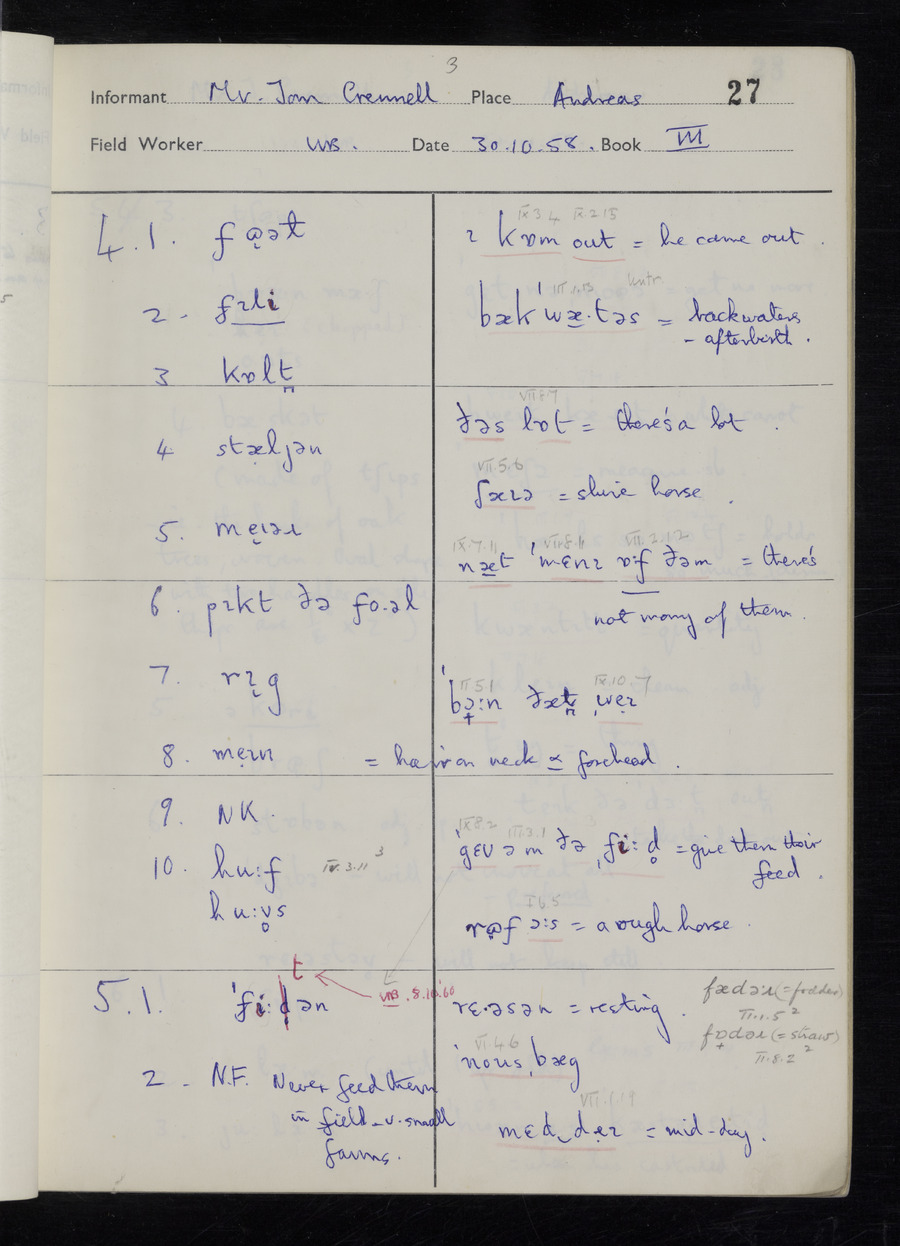 3
Informant Mr. Tom Crennell Place Andreas 27
Field Worker WB. Date 30.10.58. Book III
4.1. fɑ̣ət
2 - fɪli
3 kɒlt̪
4 stæljən
5. mẹɪəɹ
6. pɪkt ðə fo.əl
7. rɪ̣g
8. mẹɪn = hair on neck & forehead.
9. NK.
10. hu:f IV.3.11 3
hu:v̥s
5.1. ˈfi:dən t WB. 8.10.60
2 - N.F. Never feed them
in field - v. small
farms.
IX 3 4 IX.2.15
ɪ kɒm out = he came out.
III.1.13
bækˈwæ.təs = backwaters
- afterbirth.
VII 8 7
ðəs lɒt = there's a lot.
VII.5.6
ʃæɪə = shire horse.
IX.7.11 VII.8.1 VII.2.12
næt ˈmɛnɪ ɒf ðəm = there's
not many of them.
II 5 1 IX.10.7
ˈbɔ̟:n ðæt̪ ˌwẹɪ
IX 8.2 III.3.1
ˈgɛv əm ðə ˌfi:d̥ = give them their
feed.
I 6 5
rɑ̣f ɔ:s = a rough horse.
rɛ.əsən = resting.
fædəɹ (= fodder)
II.1.5 2
fɒ̟dəɹ (= straw)
II.8.2 2
VI 4 6
ˈnousˌbæg
VII.1.19
mɛd‿dẹɪ = mid-day.